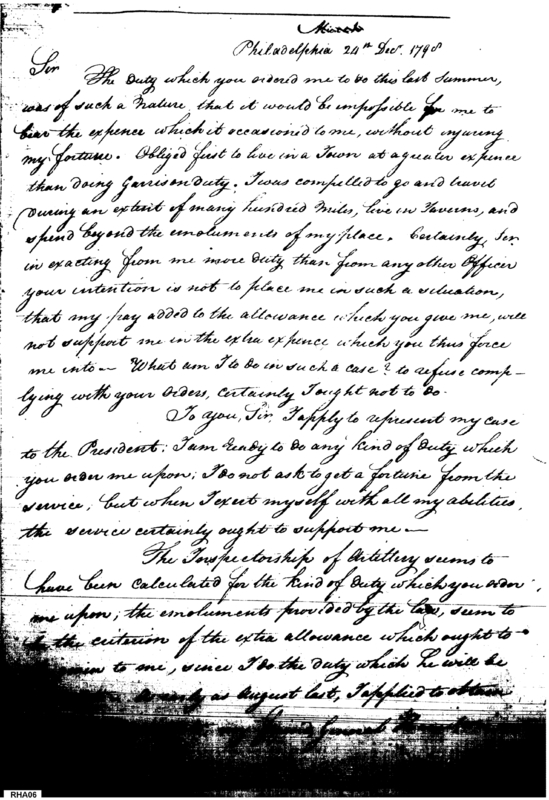 Philadelphia 24th Decr. 1798
Sir
The duty which you ordered me to do this last Summer,
was of such a Nature, that it would be impossible for me to
bear the expence which it occasioned to me, without injuring
my fortune. Obliged first to live in a Town at a greater expence
than doing Garrison duty. I was compelled to go and travel
during an extent of many hundred Miles, live in Taverns, and
spend beyond the emoluments of my place. Certainly, Sir
in exacting from me more duty than from any other Officer
your intention is not to place me in such a situation,
that my pay added to the allowance which you give me, will
not support me in the extra expence which you thus force
me into — What am I to do in such a case? to refuse comp-
lying with your orders, certainly I ought not to do.
To you, Sir, I apply to represent my case
to the President; I am ready to do any kind of duty which
you order me upon; I do not ask to get a fortune from the
service, but when I exert myself with all my abilities,
the service certainly ought to support me —
The Inspectorship of Artillery seems to
have been calculated for the kind of duty which you order
me upon; the emoluments provided by the law, seem to
the criterion of the extra allowance which ought to
to me, since I do the duty which he will be
as August last, I applied to obtain
General
RHA06